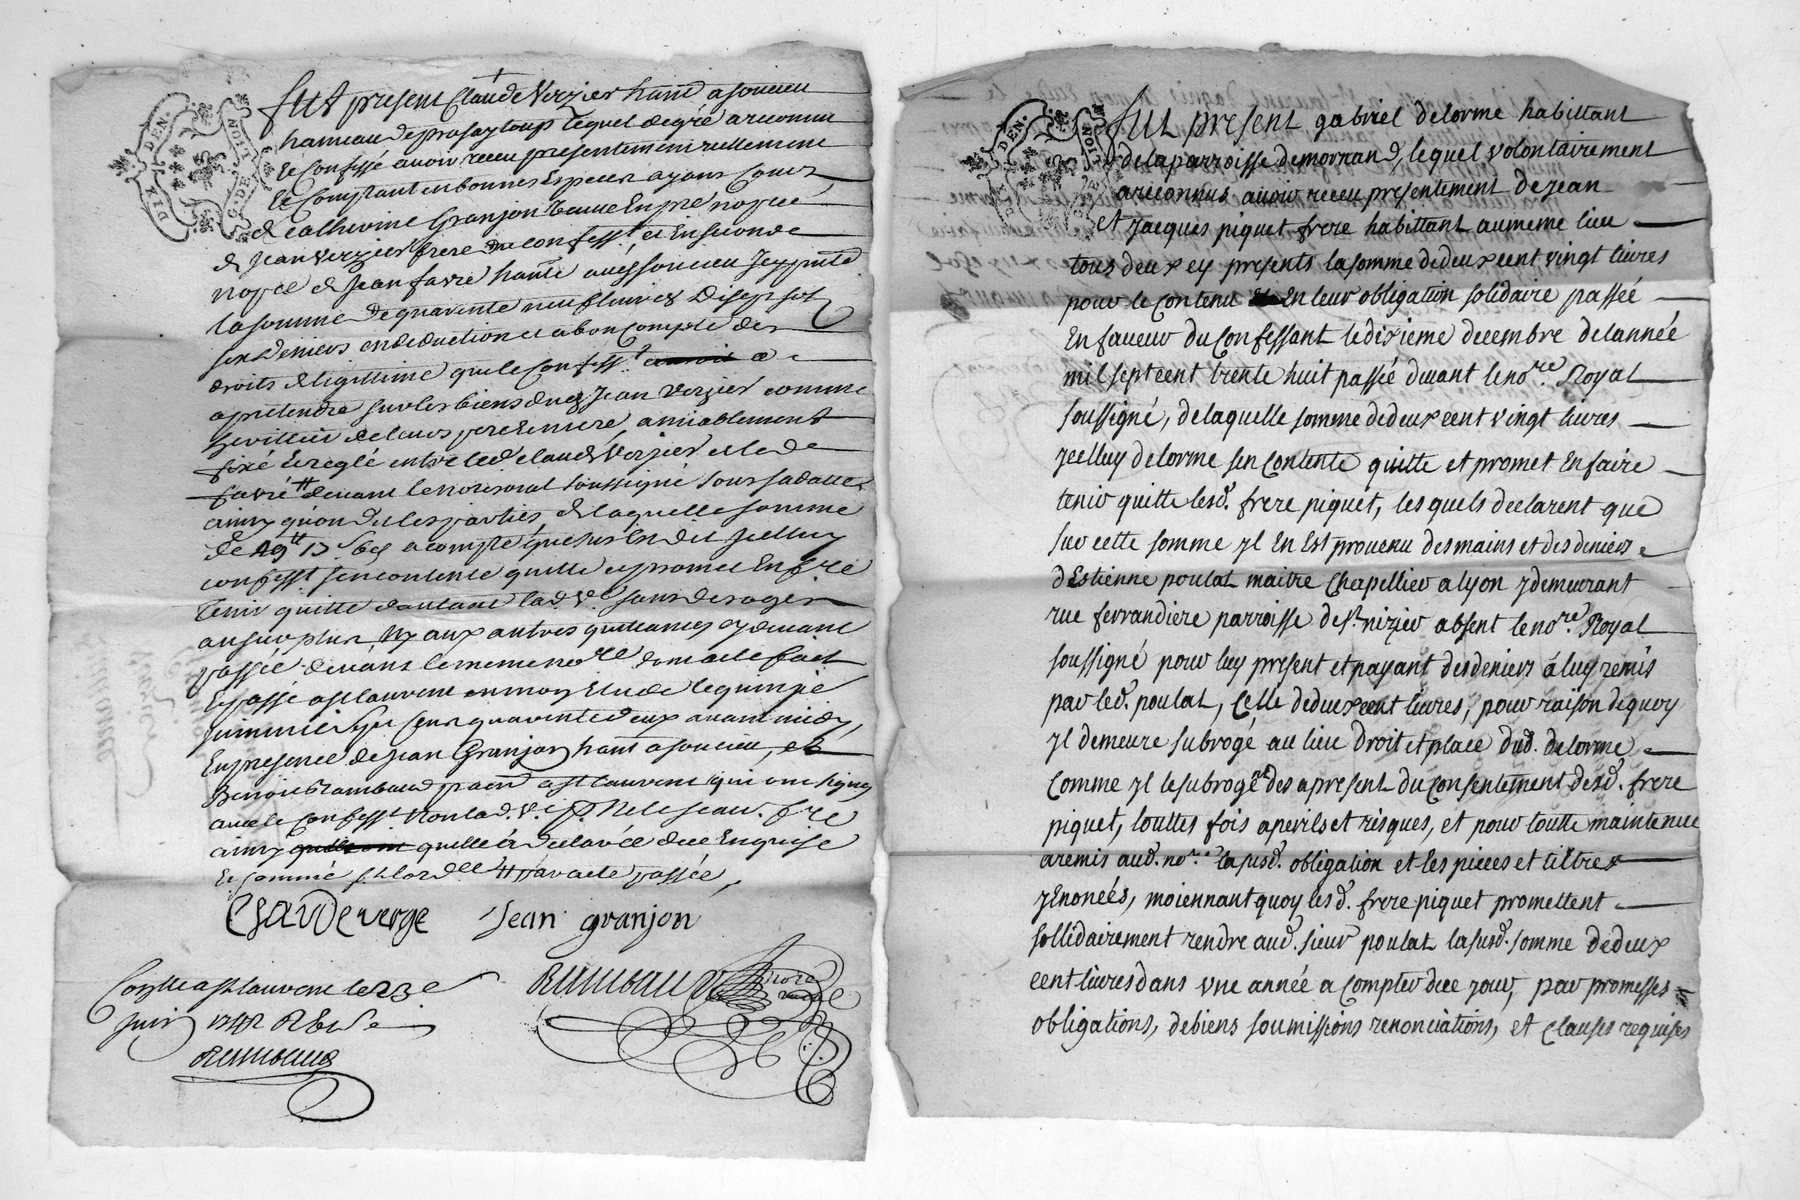 DIX DEN.
G. DE LION
fut present Claude Verzier hant a soucieu
hameau de lequel de gré a reconnu
Et Confessé avoir receu presentement reellement
Et Comptant en bonnes Especes ayant Cours
de Catherine Granjon veuve En pre nopce
de Jean Verzier frere du confesst, et En seconde
nopce de Jean favre hant audt soucieu Icy pnte
la somme de quarente neuf livres Dix sept sols
six deniers en deduction et a bon Compte des
droits de legittime que le Confesst a
a pretendre sur les biens dudt Jean Verzier comme
heritier de leurs pere Et mere, amiablement
fixé Et reglé entre led Claude Verzier et led
favre devant le not royal soussigné sous sa datte
ainsy qu'on dit les parties de laquelle somme
de 49tt 17s 6d a compte que sus Est dit Icelluy
confesst s'en contente quitte et promet En fre
tenir quitte d'autant lad ve sans deroger
au surplus Ny aux autres quittances cy devant
passée devant le meme nore dont acte fait
Et passé a st laurent en mon Etude le quinze
juin mil sept cent quarente deux avant midy,
En presence de Jean Granjon hant a soucieu, et
Benoit Rambaud a st laurent qui ont signé
avec le Confesst Non lad. ve.
ainsy quelle a declaré de ce Enquise
Et sommé par acte passée,
Claude verze Jean granjon
Rambaud nore
Conlle a st laurent le 23e
Juin 1742 R
Rambaud
DIX DEN.
G. DE LION
fut present gabriel delorme habittant
de la parroisse de mornand, lequel volontairement
a reconnus avoir receu presentement de jean
et jacques piquet frere habittant au meme lieu
tous deux cy presents la somme de deux cent vingt livres
pour le contenu En leur obligation solidaire passée
En faveur du Confessant le dixieme decembre de lannée
mil sept cent trente huit passée devant le nore. Royal
soussigné, de laquelle somme de deux cent vingt livres
jcelluy delorme s'en Contente quitte et promet En faire
tenir quitte lesd. frere piquet, les quels declarent que
sur cette somme yl En Est provenu des mains et des deniers
dEstienne poulat maitre Chapellier a lyon y demeurant
rue ferrandiere parroisse de st. nizier absent le nore. Royal
soussigné pour luy present et payant des deniers á luy remis
par led. poulat, Celle de deux cent livres, pour raison de quoy
yl demeure subrogé au lieu Droit et place dud. delorme
Comme yl le subrogent des a present du Consentement desd. frere
piquet, touttes fois a perils et risques, et pour toutte maintenue
a remis aud. nore. la susd. obligation et les pieces et tiltres
y Enoncés, moiennant quoy lesd. frere piquet promettent
sollidairement rendre aud. sieur poulat la susd. somme de deux
cent livres dans une année a Compter de ce jour, par promesses
obligations, de biens soumissions renonciations, et Clauses requises